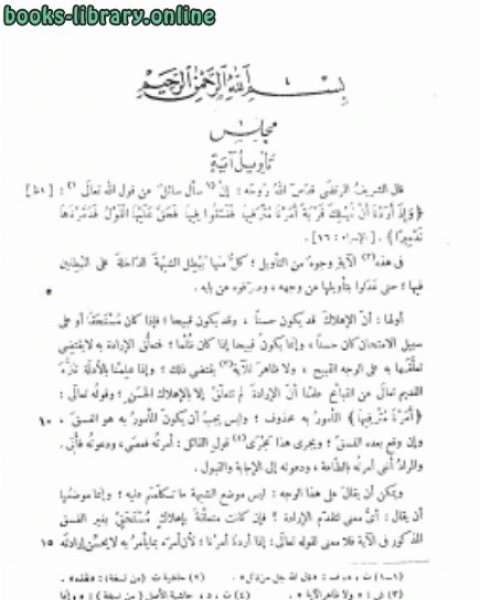 books-library.online
بسم الله الرحمن الرحيم
مجلس
تأويل آية
قال الشريف المرتضى قدّس الله روحه : إن(١) سأل سائل عن قول الله تعالى(٢) : [١ظ]
﴿وَإِذَا أَرَدْنَا أَنْ نُهْلِكَ قَرْيَةً أَمَرْنَا مُتْرَفِيهَا فَفَسَقُوا فِيهَا فَحَقَّ عَلَيْهَا الْقَوْلُ فَدَمَّرْنَاهَا
تَدْمِيرًا﴾ . [الإسراء : ١٦] .
فى هذه(٣) الآية وجوه من التأويل ؛ كلّ منها يبطل الشبهة الداخلة على المبطلين
فيها ؛ حتى عدلوا بتأويلها عن وجهه ، وصرفوه عن بابه .
٥
أولها : أنّ الإهلاك قد يكون حسنا ، وقد يكون قبيحا ؛ فإذا كان مستحقّا أو على
سبيل الامتحان كان حسنا ، وإنما يكون قبيحا إذا كان ظلما ؛ فتعلّق الإرادة به لا يقتضى
تعلّقها به على الوجه القبيح ، ولا ظاهر للآية(٣) يقتضى ذلك ؛ وإذا علمنا بالأدلة تنزّه
القديم تعالى عن القبائح علمنا أنّ الإرادة لم تتعلّق إلا بالإهلاك الحسن ؛ وقوله تعالى :
﴿أَمَرْنَا مُتْرَفِيهَا﴾ المأمور به محذوف ؛ وليس يجب أن يكون المأمور به هو الفسق ، ١٠
وإن وقع بعده الفسق ؛ ويجرى هذا مجرى(٤) قول القائل : أمرته فعصى ، ودعوته فأبى .
والمراد أننى أمرته بالطاعة ، ودعوته إلى الإجابة والقبول .
ويمكن أن يقال على هذا الوجه : ليس موضع الشبهة ما تكلّمتم عليه ؛ وإنما موضعها
أن يقال : أىّ معنى لتقدّم الإرادة ؟ فإن كانت متعلّقة بإهلاك مستحقّ بغير الفسق
المذكور فى الآية فلا معنى لقوله تعالى : إذا أردنا أمرنا ؛ لأن أمره بما يأمر به لا يحسن إرادته ١٥
(١-١) ت ، د ، ف : «قال الله جل من قائل» . (٢) حاشية ت (من نسخة) : «فقده» .